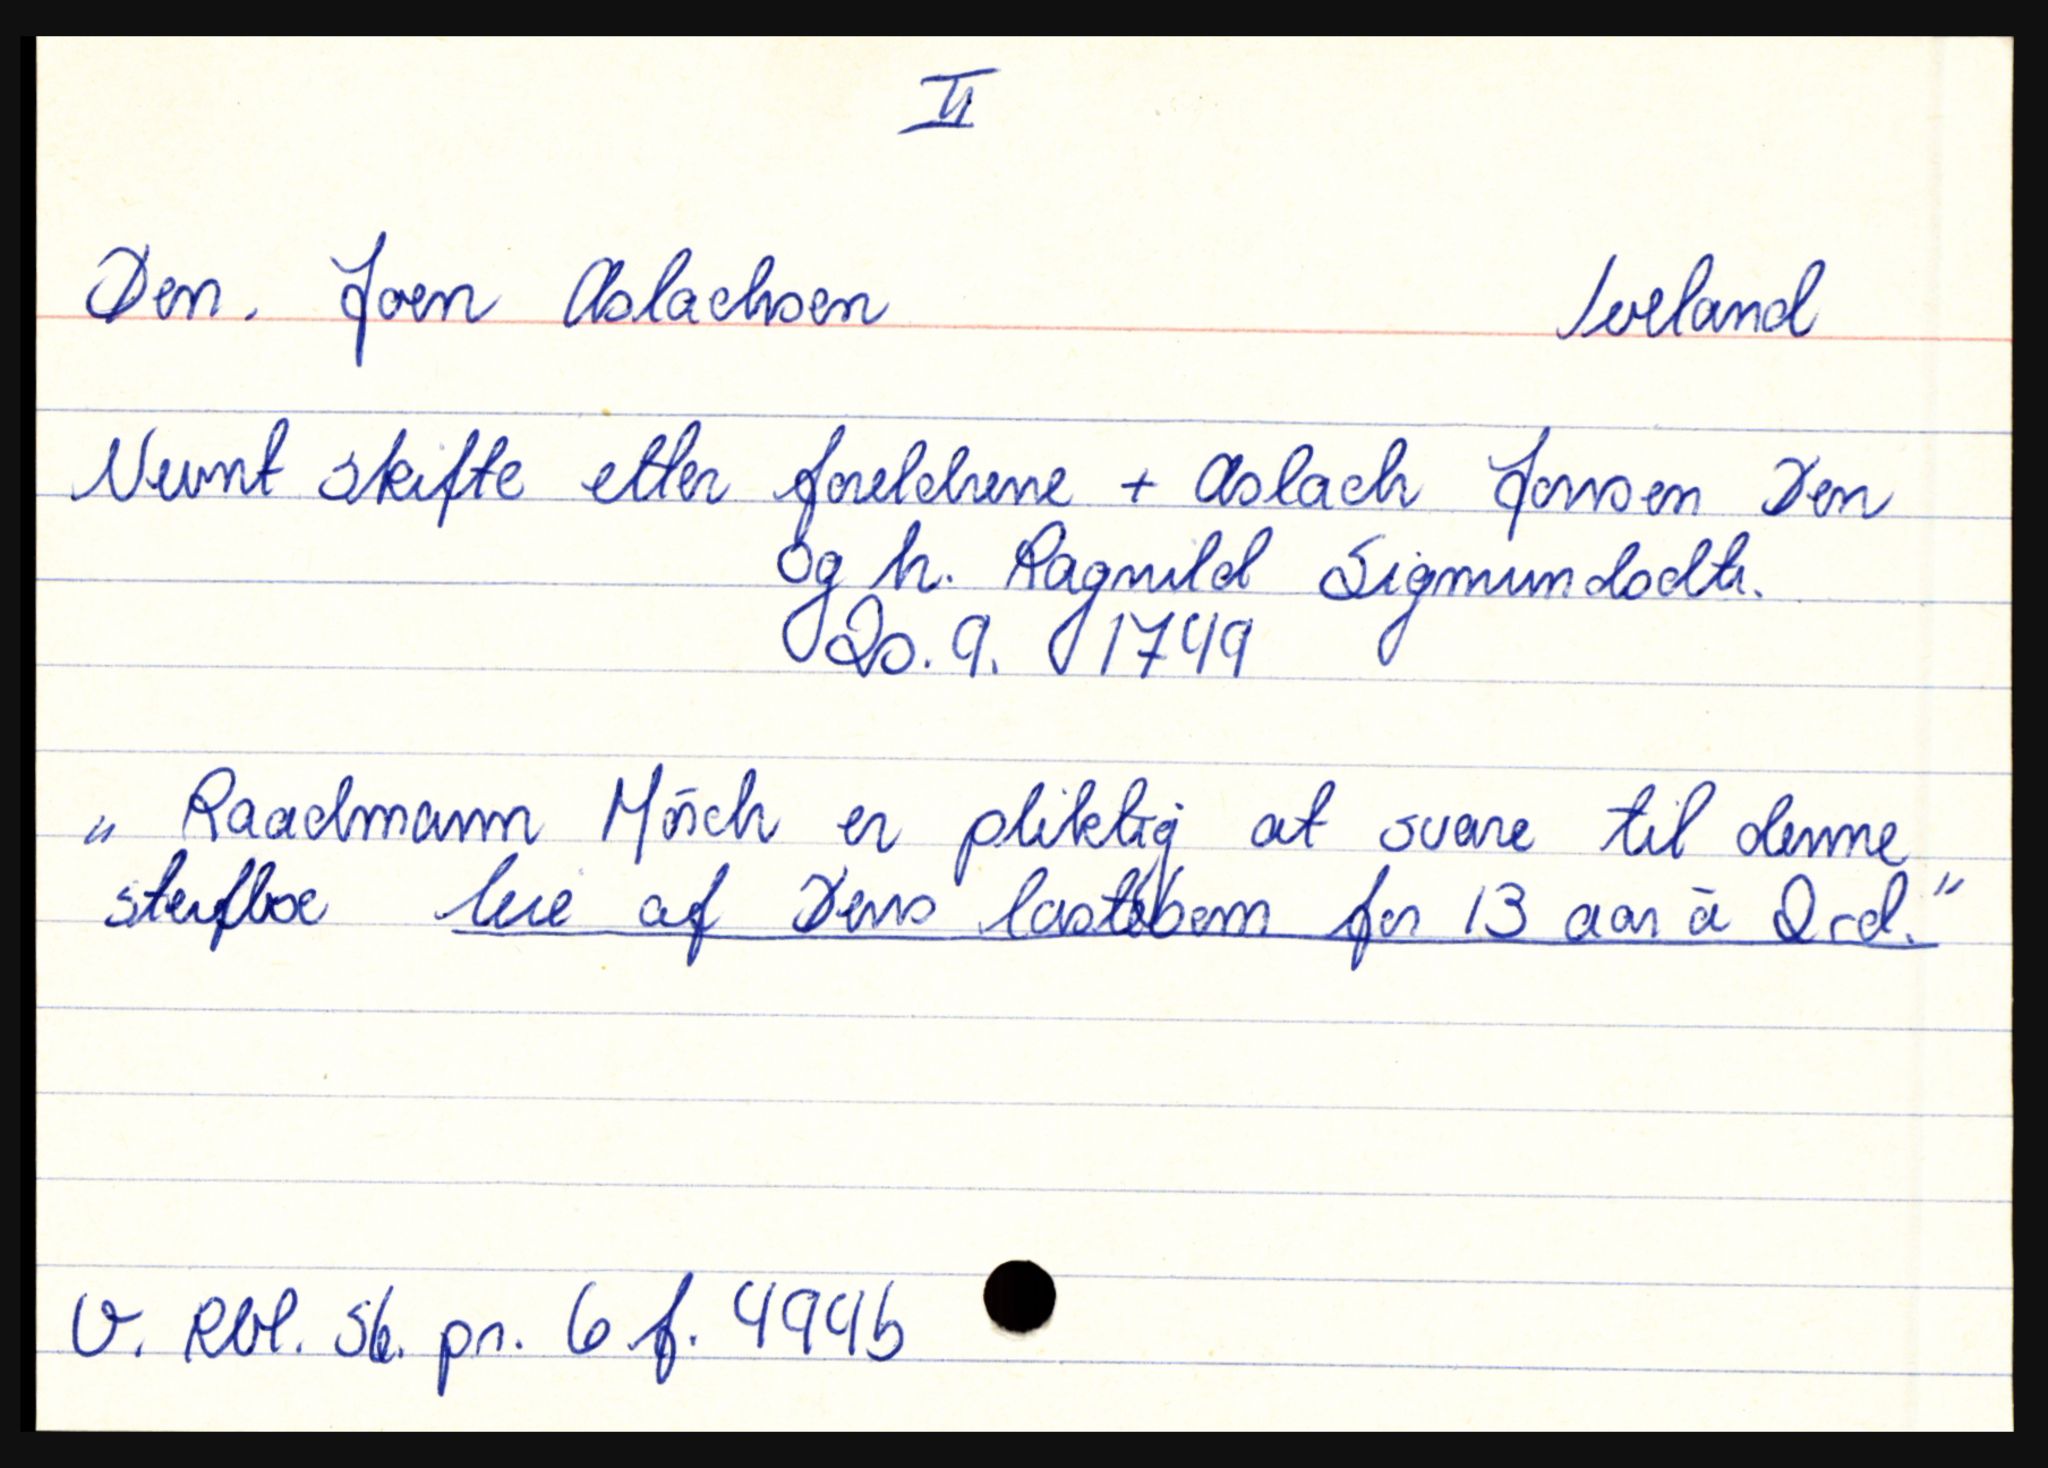 II
Den. Joen Aslachsen Iveland
Nevnt skifte etter foreldrene + Aslach Jonsen Den
og h. Ragnild Sigmundsdtr.
20. 9. 1749
„ Raadmann Mörch er pliktig at svare til denne
sterfboe leie af Dens lastebom for 13 aar à 2 rd."
V. Rbl. Sk. pr. 6 f. 494b